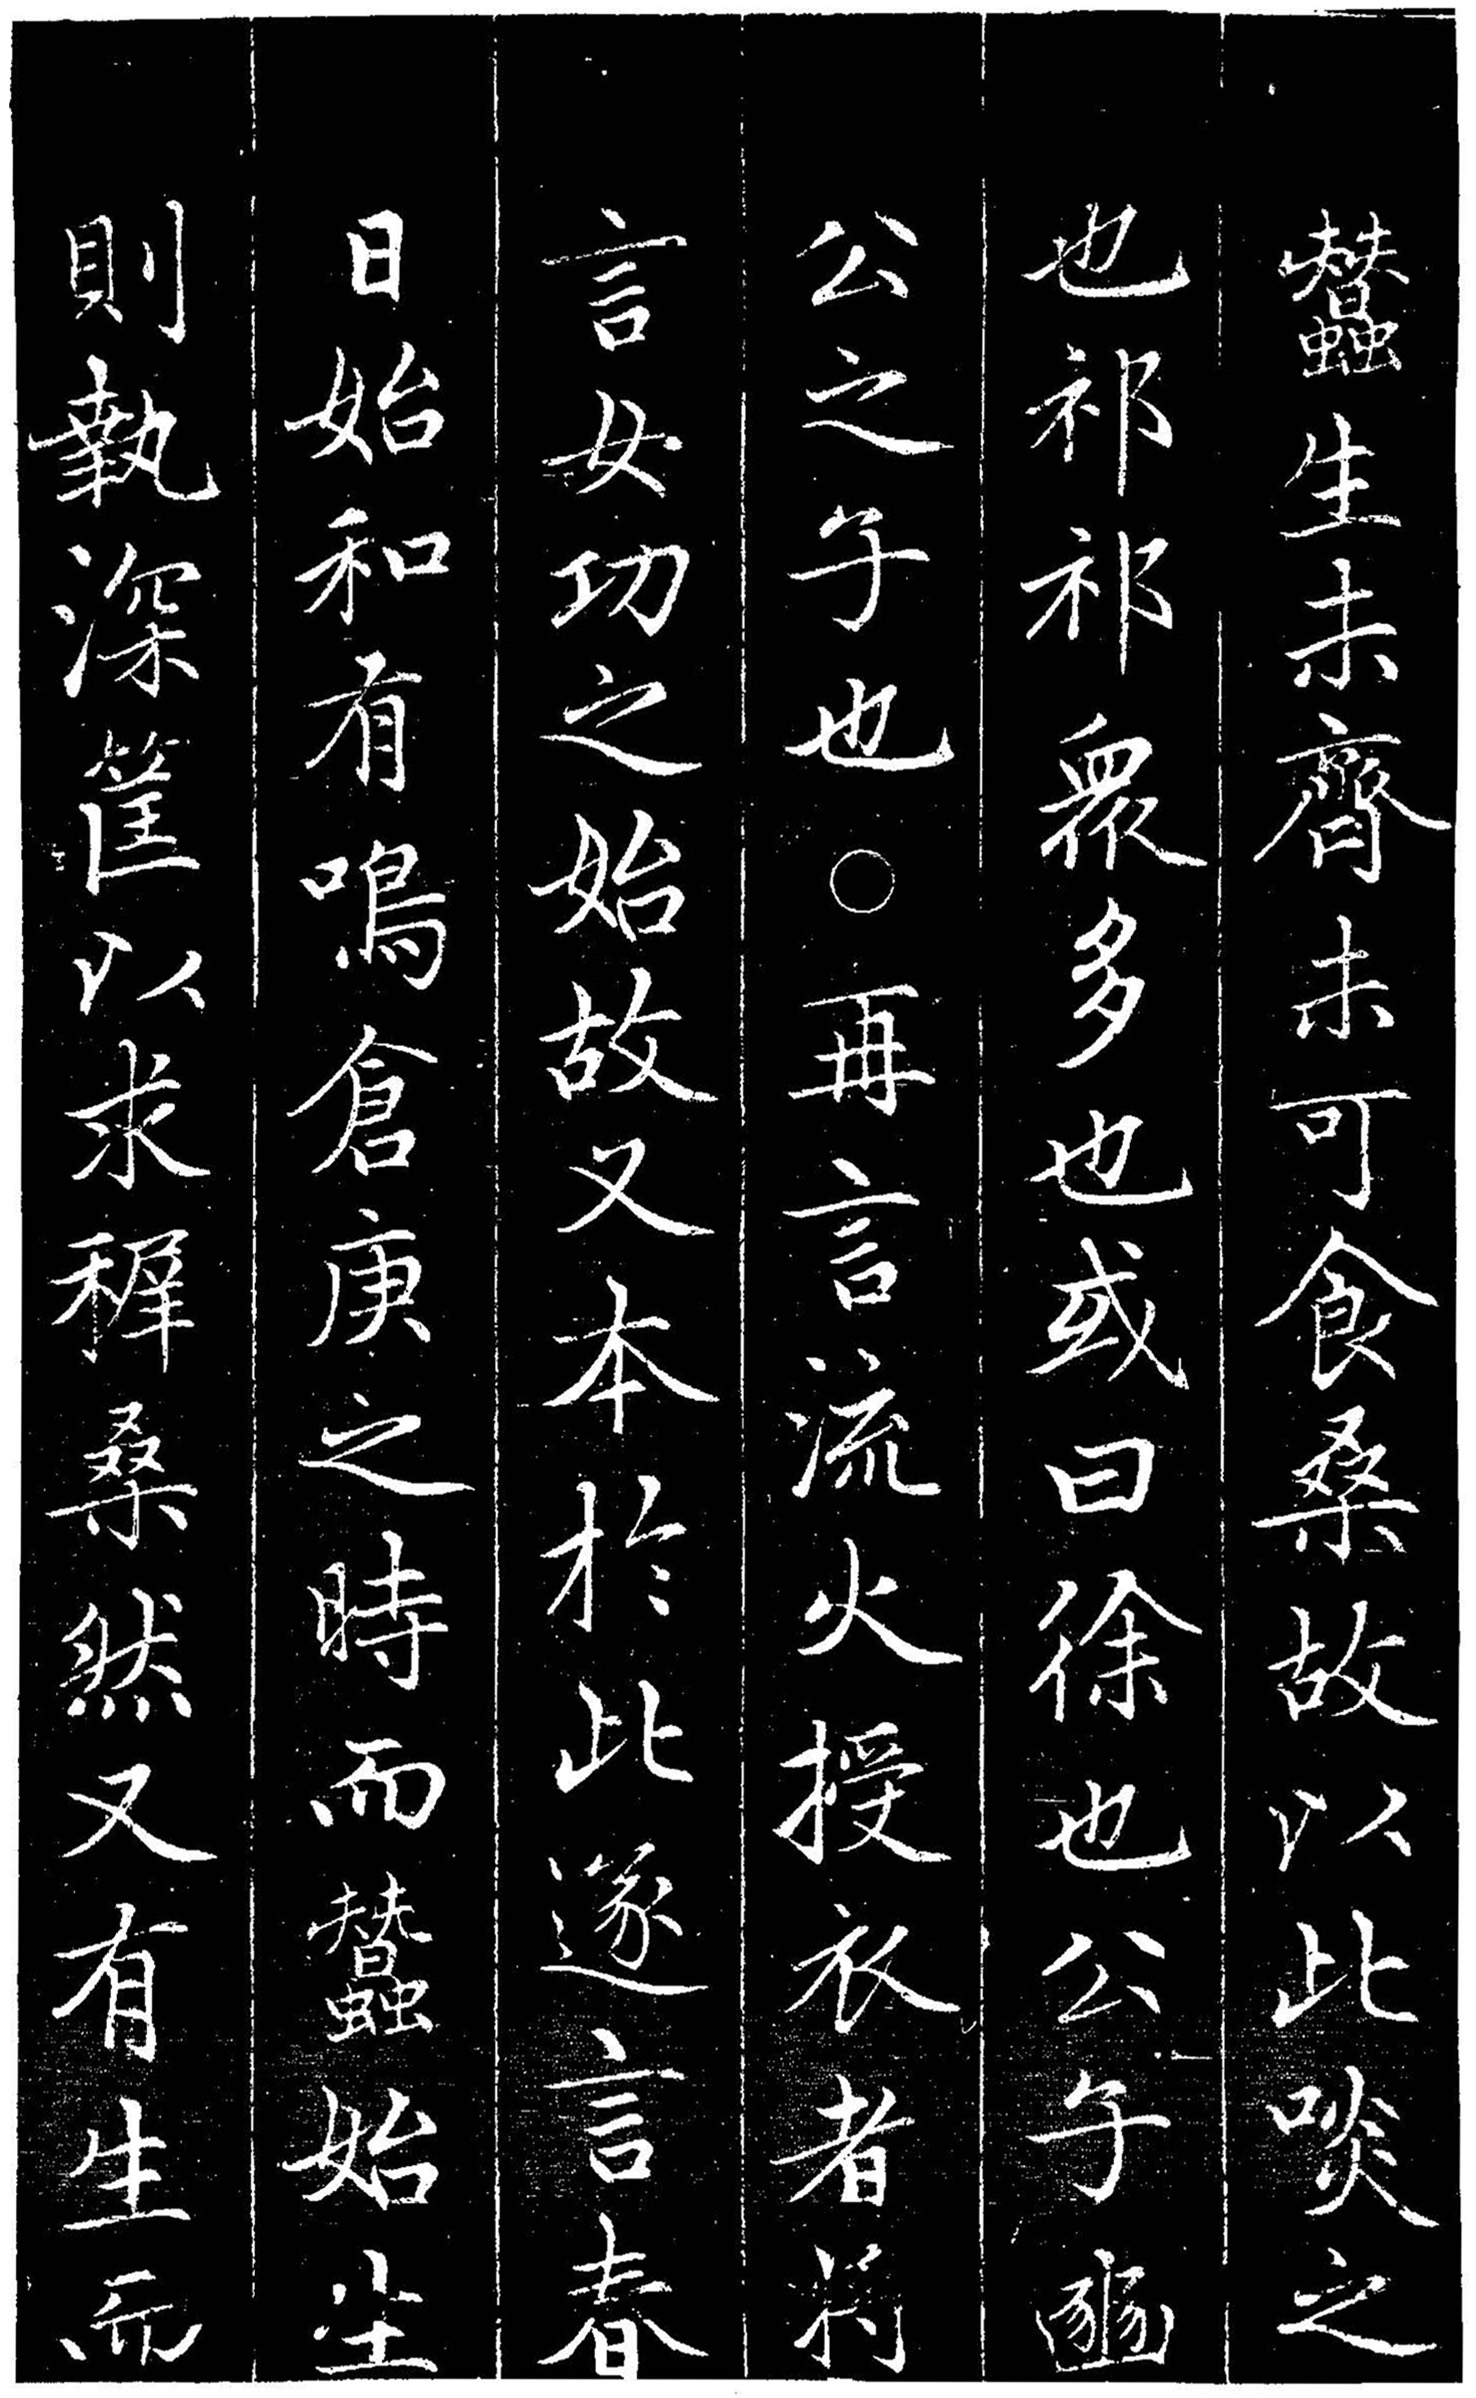 蠶生未齊未可食桑故以此啖之
也祁祁衆多也或曰徐也公子豳
公之子也○再言流火授衣者將
言女功之始故又本於此遂言春
日始和有鳴倉庚之時而蠶始生
則執深筐以求穉桑然又有生而